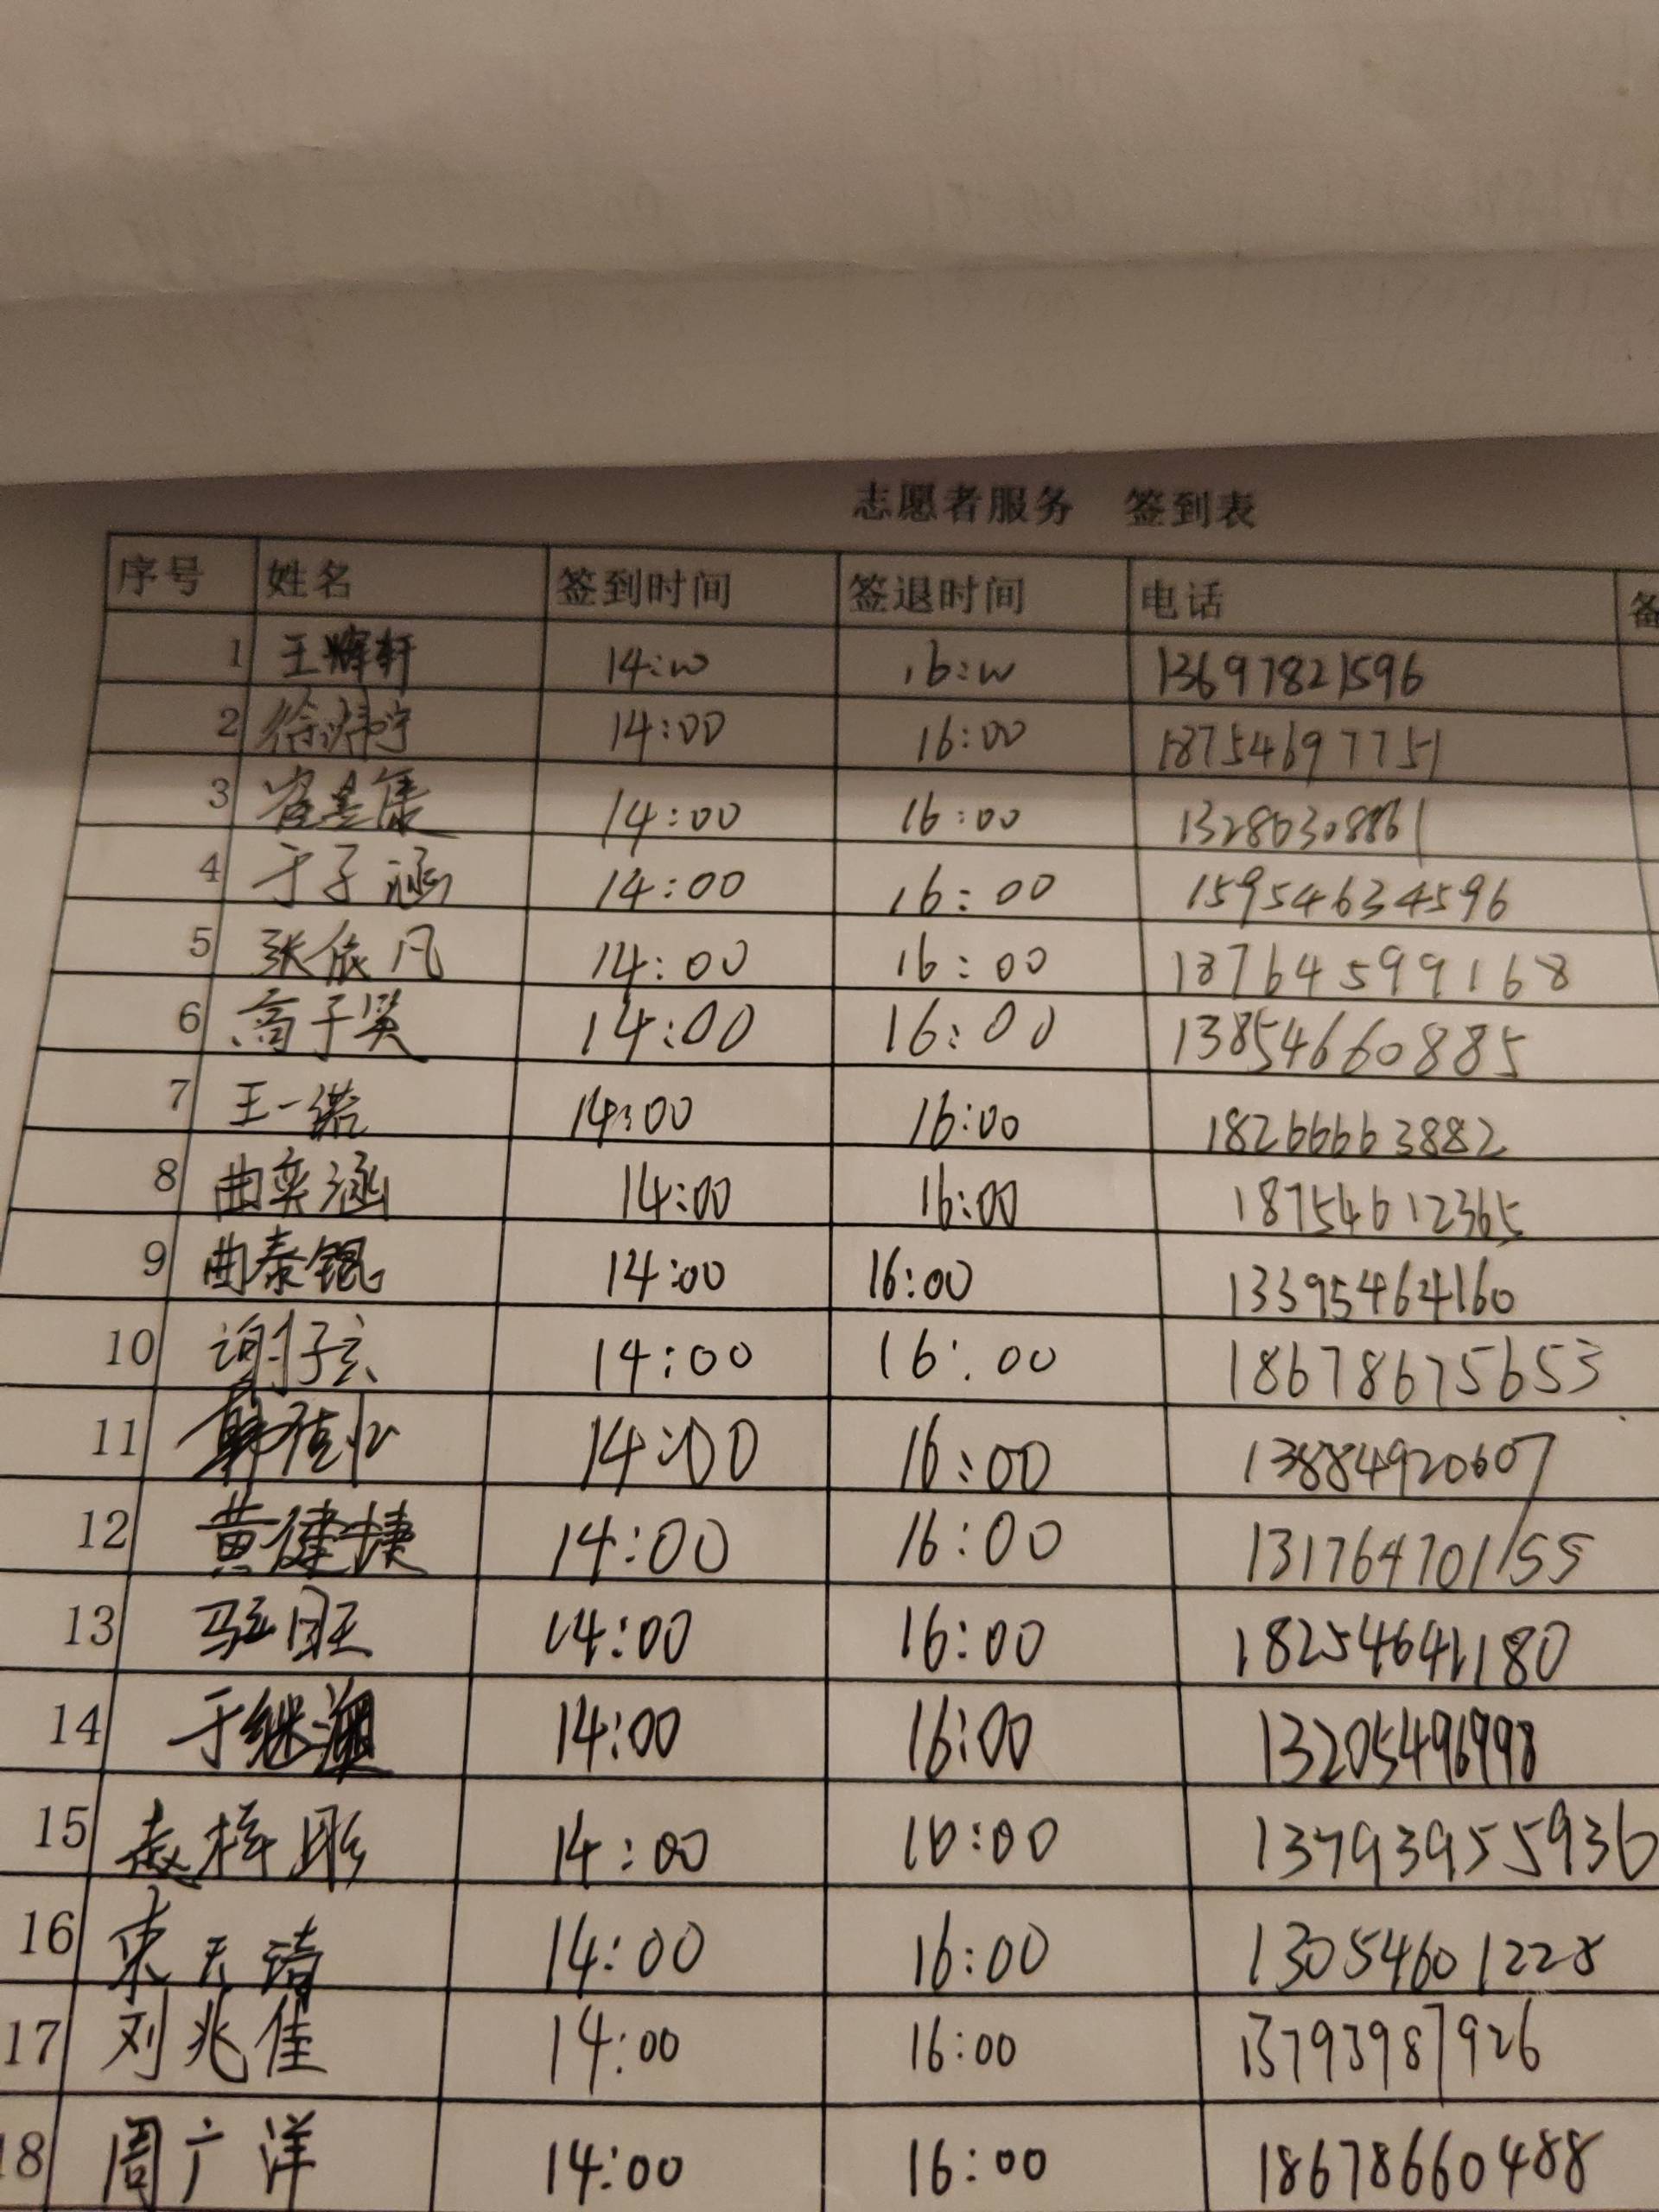 志愿者服务 签到表
序号 姓名 签到时间 签退时间 电话 备
1 王辉轩 14:00 16:00 13697821596
2 徐炜宁 14:00 16:00 18754697751
3 14:00 16:00 13280308861
4 于子涵 14:00 16:00 15954634596
5 张依凡 14:00 16:00 18764599168
6 高子昊 14:00 16:00 13854660885
7 王一诺 14:00 16:00 18266663882
8 曲奕涵 14:00 16:00 18754612365
9 曲泰锟 14:00 16:00 13395464160
10 谢子玄 14:00 16:00 18678675653
11 14:00 16:00 13884920607
12 黄健捷 14:00 16:00 13176470155
13 14:00 16:00 18254641180
14 于继溟 14:00 16:00 13205496998
15 赵梓彤 14:00 16:00 13793955936
16 14:00 16:00 13054601228
17 刘兆佳 14:00 16:00 13793987926
18 周广洋 14:00 16:00 18678660488